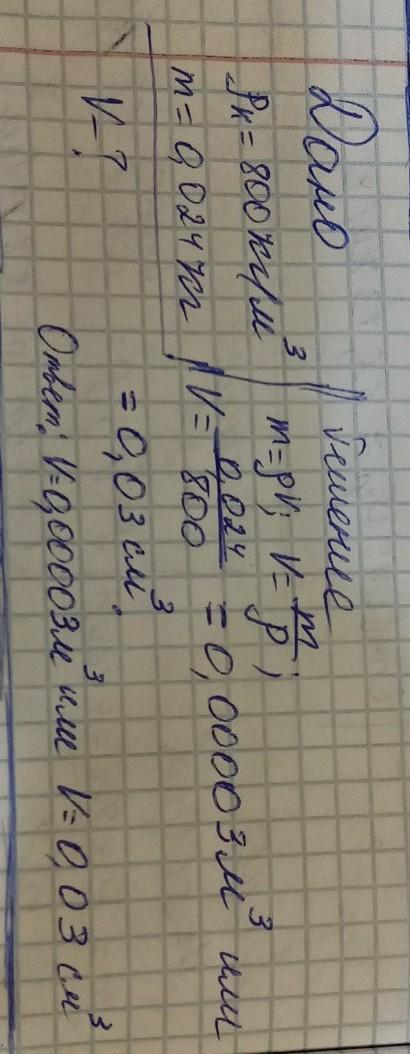 Дано
ρк = 800 кг/м³
m = 0,024 кг
V – ?
Решение
m = ρV; V = m/ρ;
V = 0,024/800 = 0,00003 м³ или
= 0,03 см³.
Ответ: V = 0,00003 м³ или V = 0,03 см³